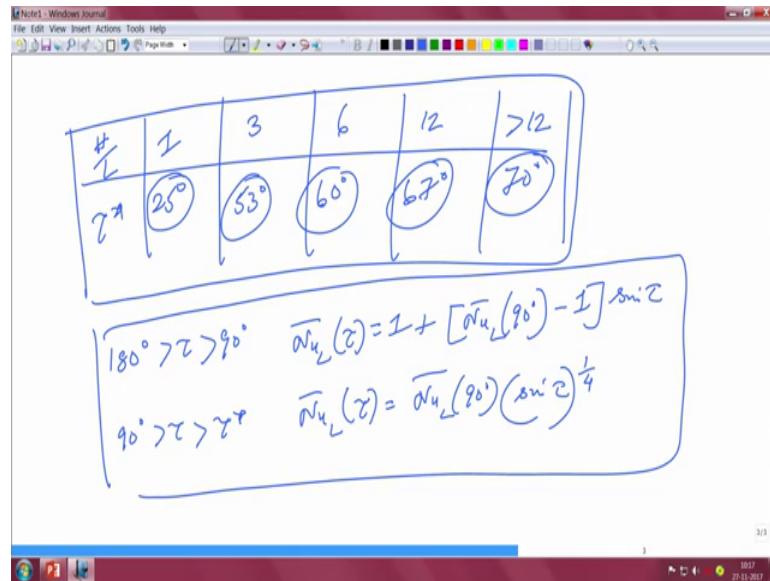 Note1 - Windows Journal
File Edit View Insert Actions Tools Help
Page Width
B I
H/L 1 3 6 12 >12
τ* 25° 53° 60° 67° 70°
180° > τ > 90° N̅u_L(τ) = 1 + [N̅u_L(90°) - 1] sin τ
90° > τ > τ* N̅u_L(τ) = N̅u_L(90°) (sin τ)^1/4
3/3
3
10:17
27-11-2017